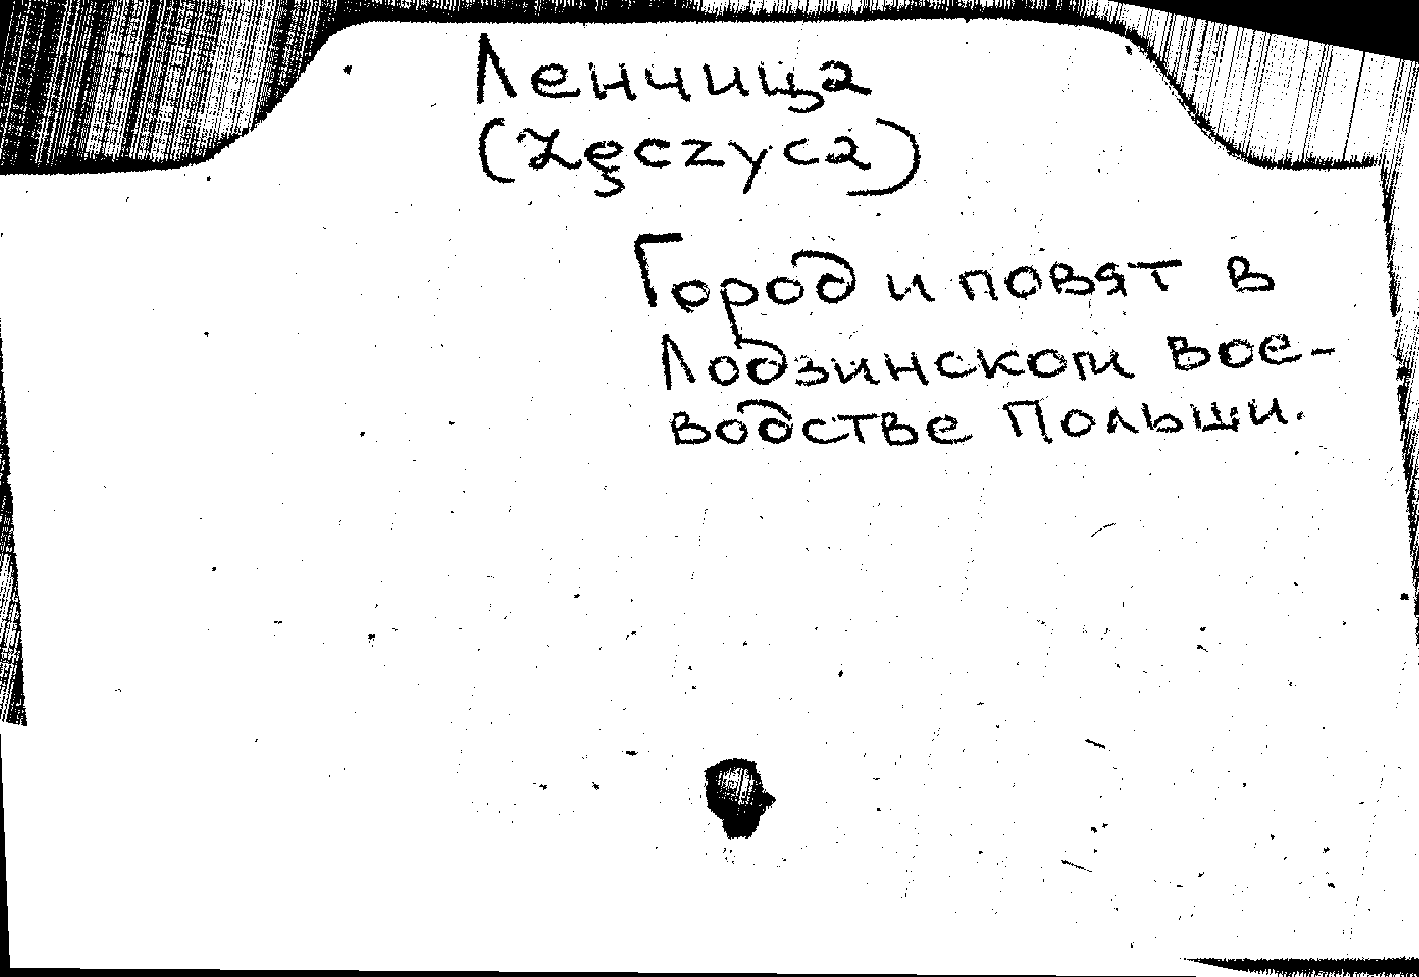 Ленчица
(Łęczyca)
Город и повят в
Лодзинском вое-
водстве Польши.